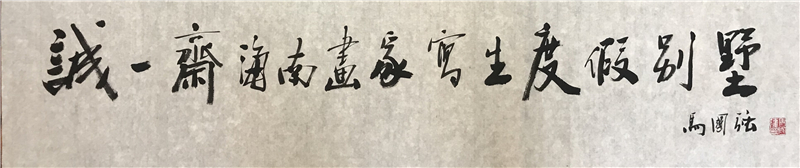 誠一齋海南畫家寫生度假别墅
馬國強